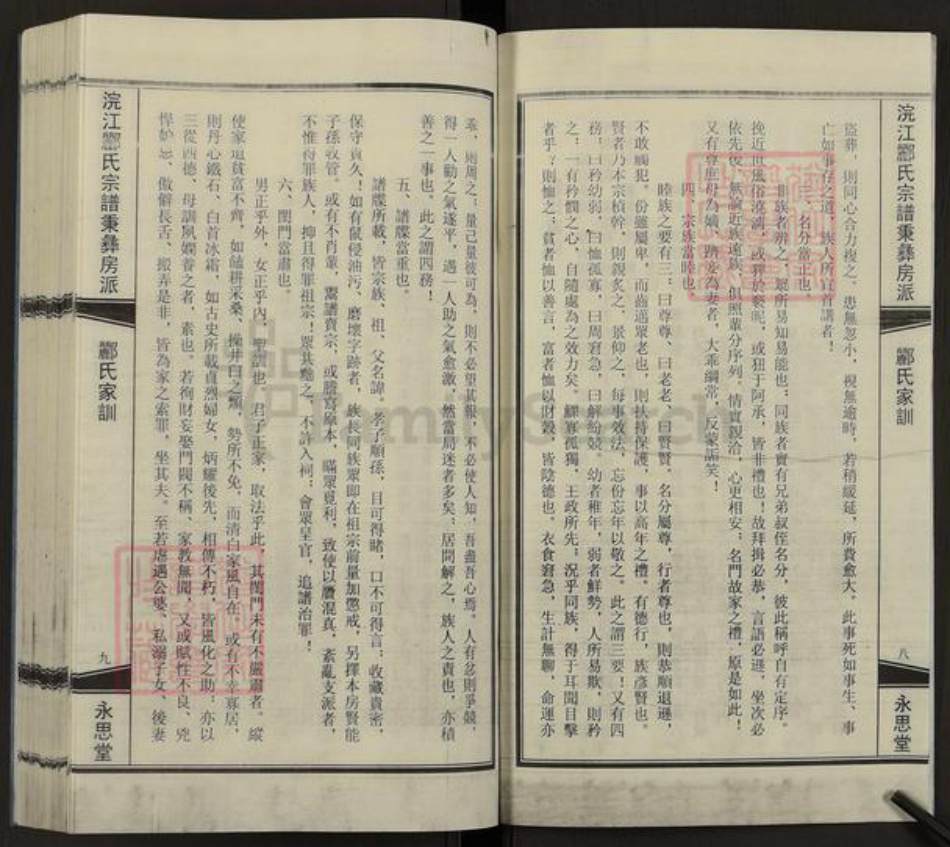 浣江酈氏宗譜秉彝房派
酈氏家訓
八
永思堂
盜葬，則同心合力複之。患無忽小，視無逾時，若稍緩延，所費愈大。此事死如事生、事
亡如事存之道，族人所宜首講者！
三、名分當正也。
非族者辨之，眾所易知易能也；同族者實有兄弟叔侄名分，彼此稱呼自有定序。
挽近世風俗澆漓，或狎於褻昵，或狃于阿承，皆非禮也！故拜揖必恭，言語必遜，坐次必
依先後，無論近族遠族，俱照輩分序列。情實親洽，心更相安；名門故家之禮，原是如此！
又有尊庶母為嫡、躋妾為妻者，大乖綱常，反蒙詬笑！
四、宗族當睦也。
睦族之要有三：曰尊尊、曰老老、曰賢賢。名分屬尊，行者尊也，則恭順退遜，
不敢觸犯。份雖屬卑，而齒邁眾老也，則扶持保護，事以高年之禮。有德行，族彥賢也。
賢者乃本宗楨幹，則親炙之、景仰之，每事效法，忘份忘年以敬之。此之謂三要！又有四
務：曰矜幼弱，曰恤孤寡，曰周窘急，曰解紛競。幼者稚年，弱者鮮勢，人所易欺，則矜
之；一有矜憫之心，自隨處為之效力矣。鰥寡孤獨，王政所先；況乎同族，得于耳聞目擊
者乎？則恤之；貧者恤以善言，富者恤以財穀，皆陰德也。衣食窘急，生計無聊，命運亦
乖，則周之；量己量彼可為，則不必望其報，不必使人知，吾盡吾心焉。人有忿則爭競，
得一人勸之氣遂平，遇一人助之氣愈激，然當局迷者多矣；居間解之，族人之責也，亦積
善之一事也。此之謂四務！
五、譜牒當重也。
譜牒所載，皆宗族、祖、父名諱。孝子順孫，目可得睹，口不可得言；收藏貴密，
保守貴久！如有鼠侵油污、磨壞字跡者，族長同族眾即在祖宗前量加懲戒，另擇本房賢能
子孫收管。或有不肖輩，鬻譜賣宗，或謄寫原本，瞞眾覓利，致使以贗混真，紊亂支派者，
不惟得罪族人，抑且得罪祖宗！眾共黜之，不許入祠；會眾呈官，追譜治罪！
六、閨門當肅也。
男正乎外，女正乎內，聖訓也。君子正家，取法乎此，其閨門未有不嚴肅者。縱
使家道貧富不齊，如饁耕采桑、操井臼之類，勢所不免，而清白家風自在。或有不幸寡居，
則丹心鐵石，白首冰霜，如古史所載貞烈婦女，炳耀後先，相傳不朽，皆風化之助，亦以
三從四德、母訓夙嫻養之者，素也。若徇財妄娶門閥不稱、家教無聞，又或賦性不良、兇
悍妒忌、傲僻長舌、搬弄是非，皆為家之索罪，坐其夫。至若虐遇公婆、私溺子女，後妻
浣江酈氏宗譜秉彝房派
酈氏家訓
九
永思堂
FamilySearch